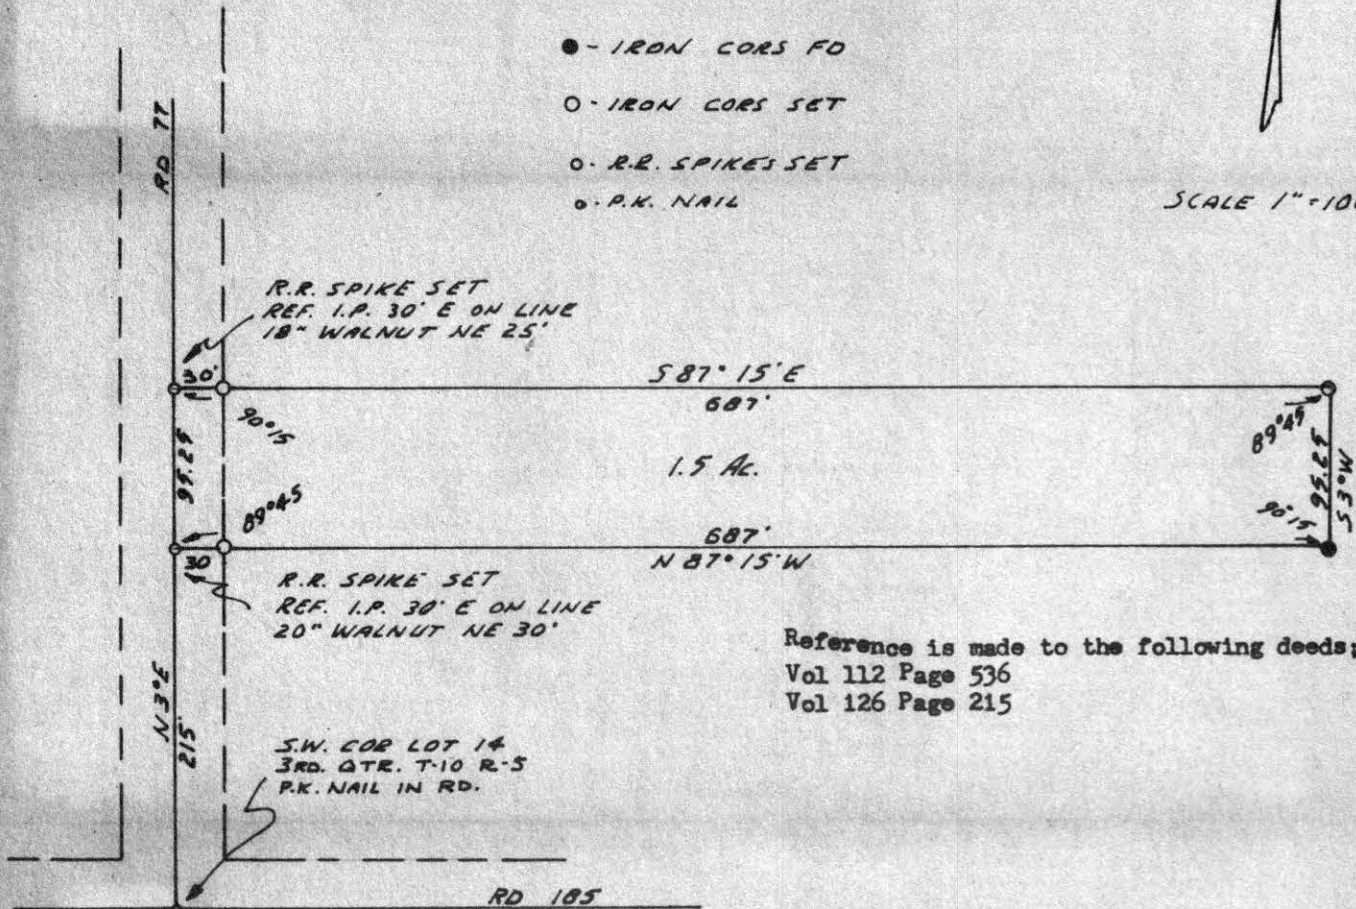 ● - IRON CORS FD
O - IRON CORS SET
o - R.R. SPIKES SET
o - P.K. NAIL
SCALE 1" = 10
RD 77
R.R. SPIKE SET
REF. I.P. 30' E ON LINE
18" WALNUT NE 25'
30'
S 87° 15' E
687'
90°15
89°45
95.25
1.5 Ac.
95.25
S 3° W
89°45
90°15
687'
N 87° 15' W
30
R.R. SPIKE SET
REF. I.P. 30' E ON LINE
20" WALNUT NE 30'
Reference is made to the following deeds;
Vol 112 Page 536
Vol 126 Page 215
N 3° E
215'
S.W. COR LOT 14
3RD. QTR. T-10 R-5
P.K. NAIL IN RD.
RD 185